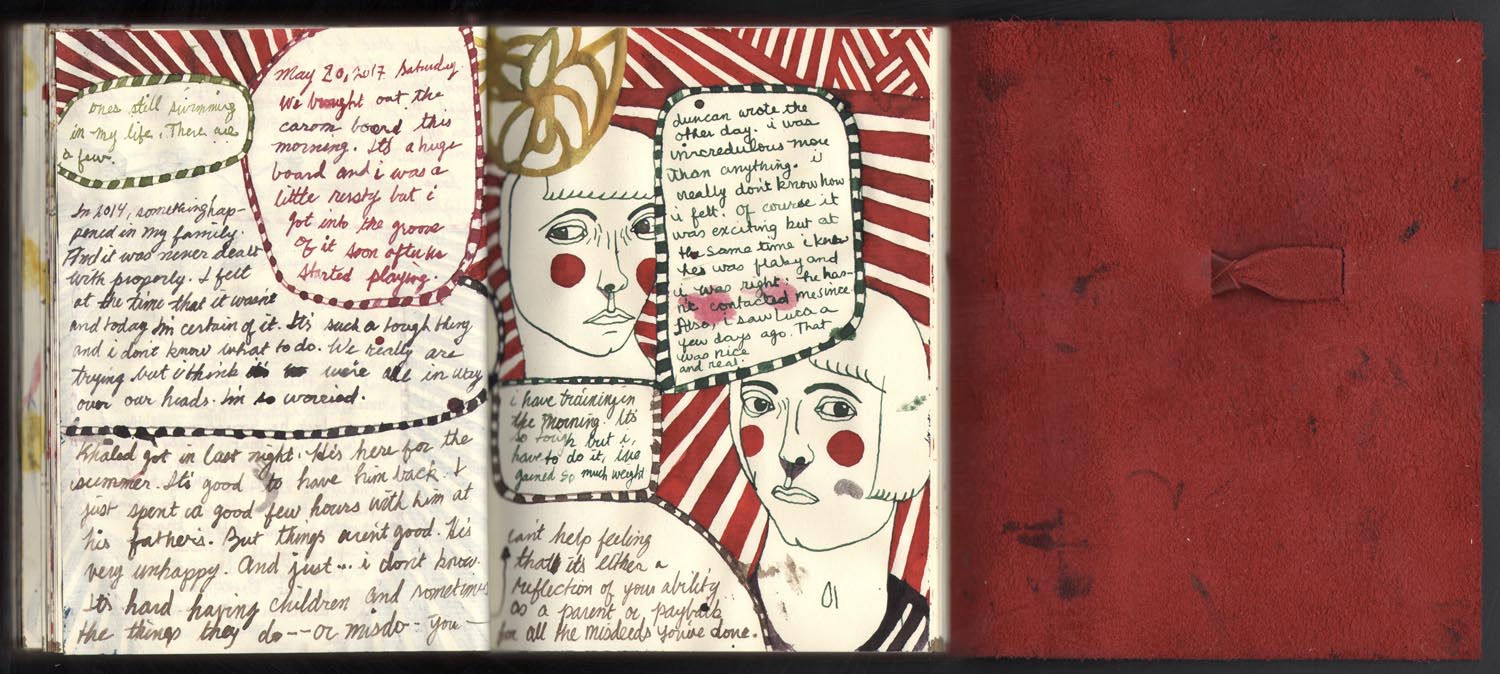 ones still swimming
in my life. There are
a few.
May 20, 2017 Saturday.
We brought out the
carom board this
morning. It's a huge
board and i was a
little rusty but i
got into the groove
of it soon after we
started playing.
In 2014, something hap-
pened in my family.
And it was never dealt
with properly. I felt
at the time that it wasn't
and today I'm certain of it. It's such a tough thing
and i don't know what to do. We really are
trying but i think we're all in way
over our heads. I'm so worried.
Khaled got in last night. He's here for the
summer. It's good to have him back. I
just spent a good few hours with him at
his father's. But things aren't good. He's
very unhappy. And just... i don't know.
It's hard having children and sometimes
the things they do -- or misdo -- you
duncan wrote the
other day. i was
incredulous more
than anything. i
really don't know how
i felt. Of course it
was exciting but at
the same time i knew
he was flaky and
i was right. he has-
n't contacted me since.
Also, i saw Luca a
few days ago. That
was nice
and real.
i have training in
the morning. It's
so tough but i
have to do it, i've
gained so much weight
can't help feeling
that it's either a
reflection of your ability
as a parent or payback
for all the misdeeds you've done.